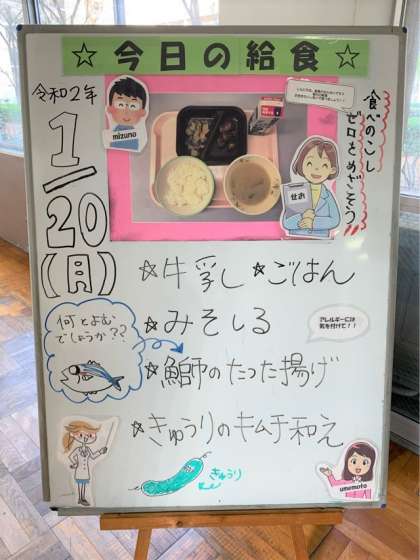 ☆今日の給食☆
令和2年
1/20(月)
mizuno
せお
食べのこし
ゼロとめざそう!!
☆牛乳し☆ごはん
☆みそしる
アレルギーには
気を付けて!!
何とよむ
でしょうか??
☆鰤のたった揚げ
☆きゅうりのキムチ和え
きゅうり
umemoto